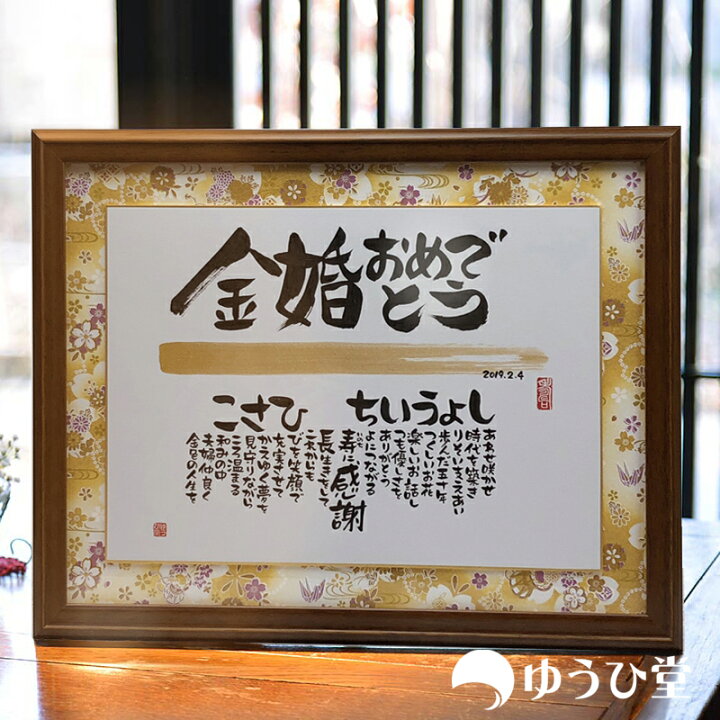 金婚おめで
とう
2019.2.4
しょういち
あわせ咲かせ
時代を築き
りそいささえあい
歩んだ五十年
つくしいお花
楽しいお話し
つも優しさを
ありがとう
よにつながる
寿に感謝
いのち
長生きをして
これからも
ひさこ
びを笑顔で
充実させて
かえゆく夢を
見守りながら
ころ温まる
和みの中
夫婦仲良く
金色の人生を
ゆうひ堂